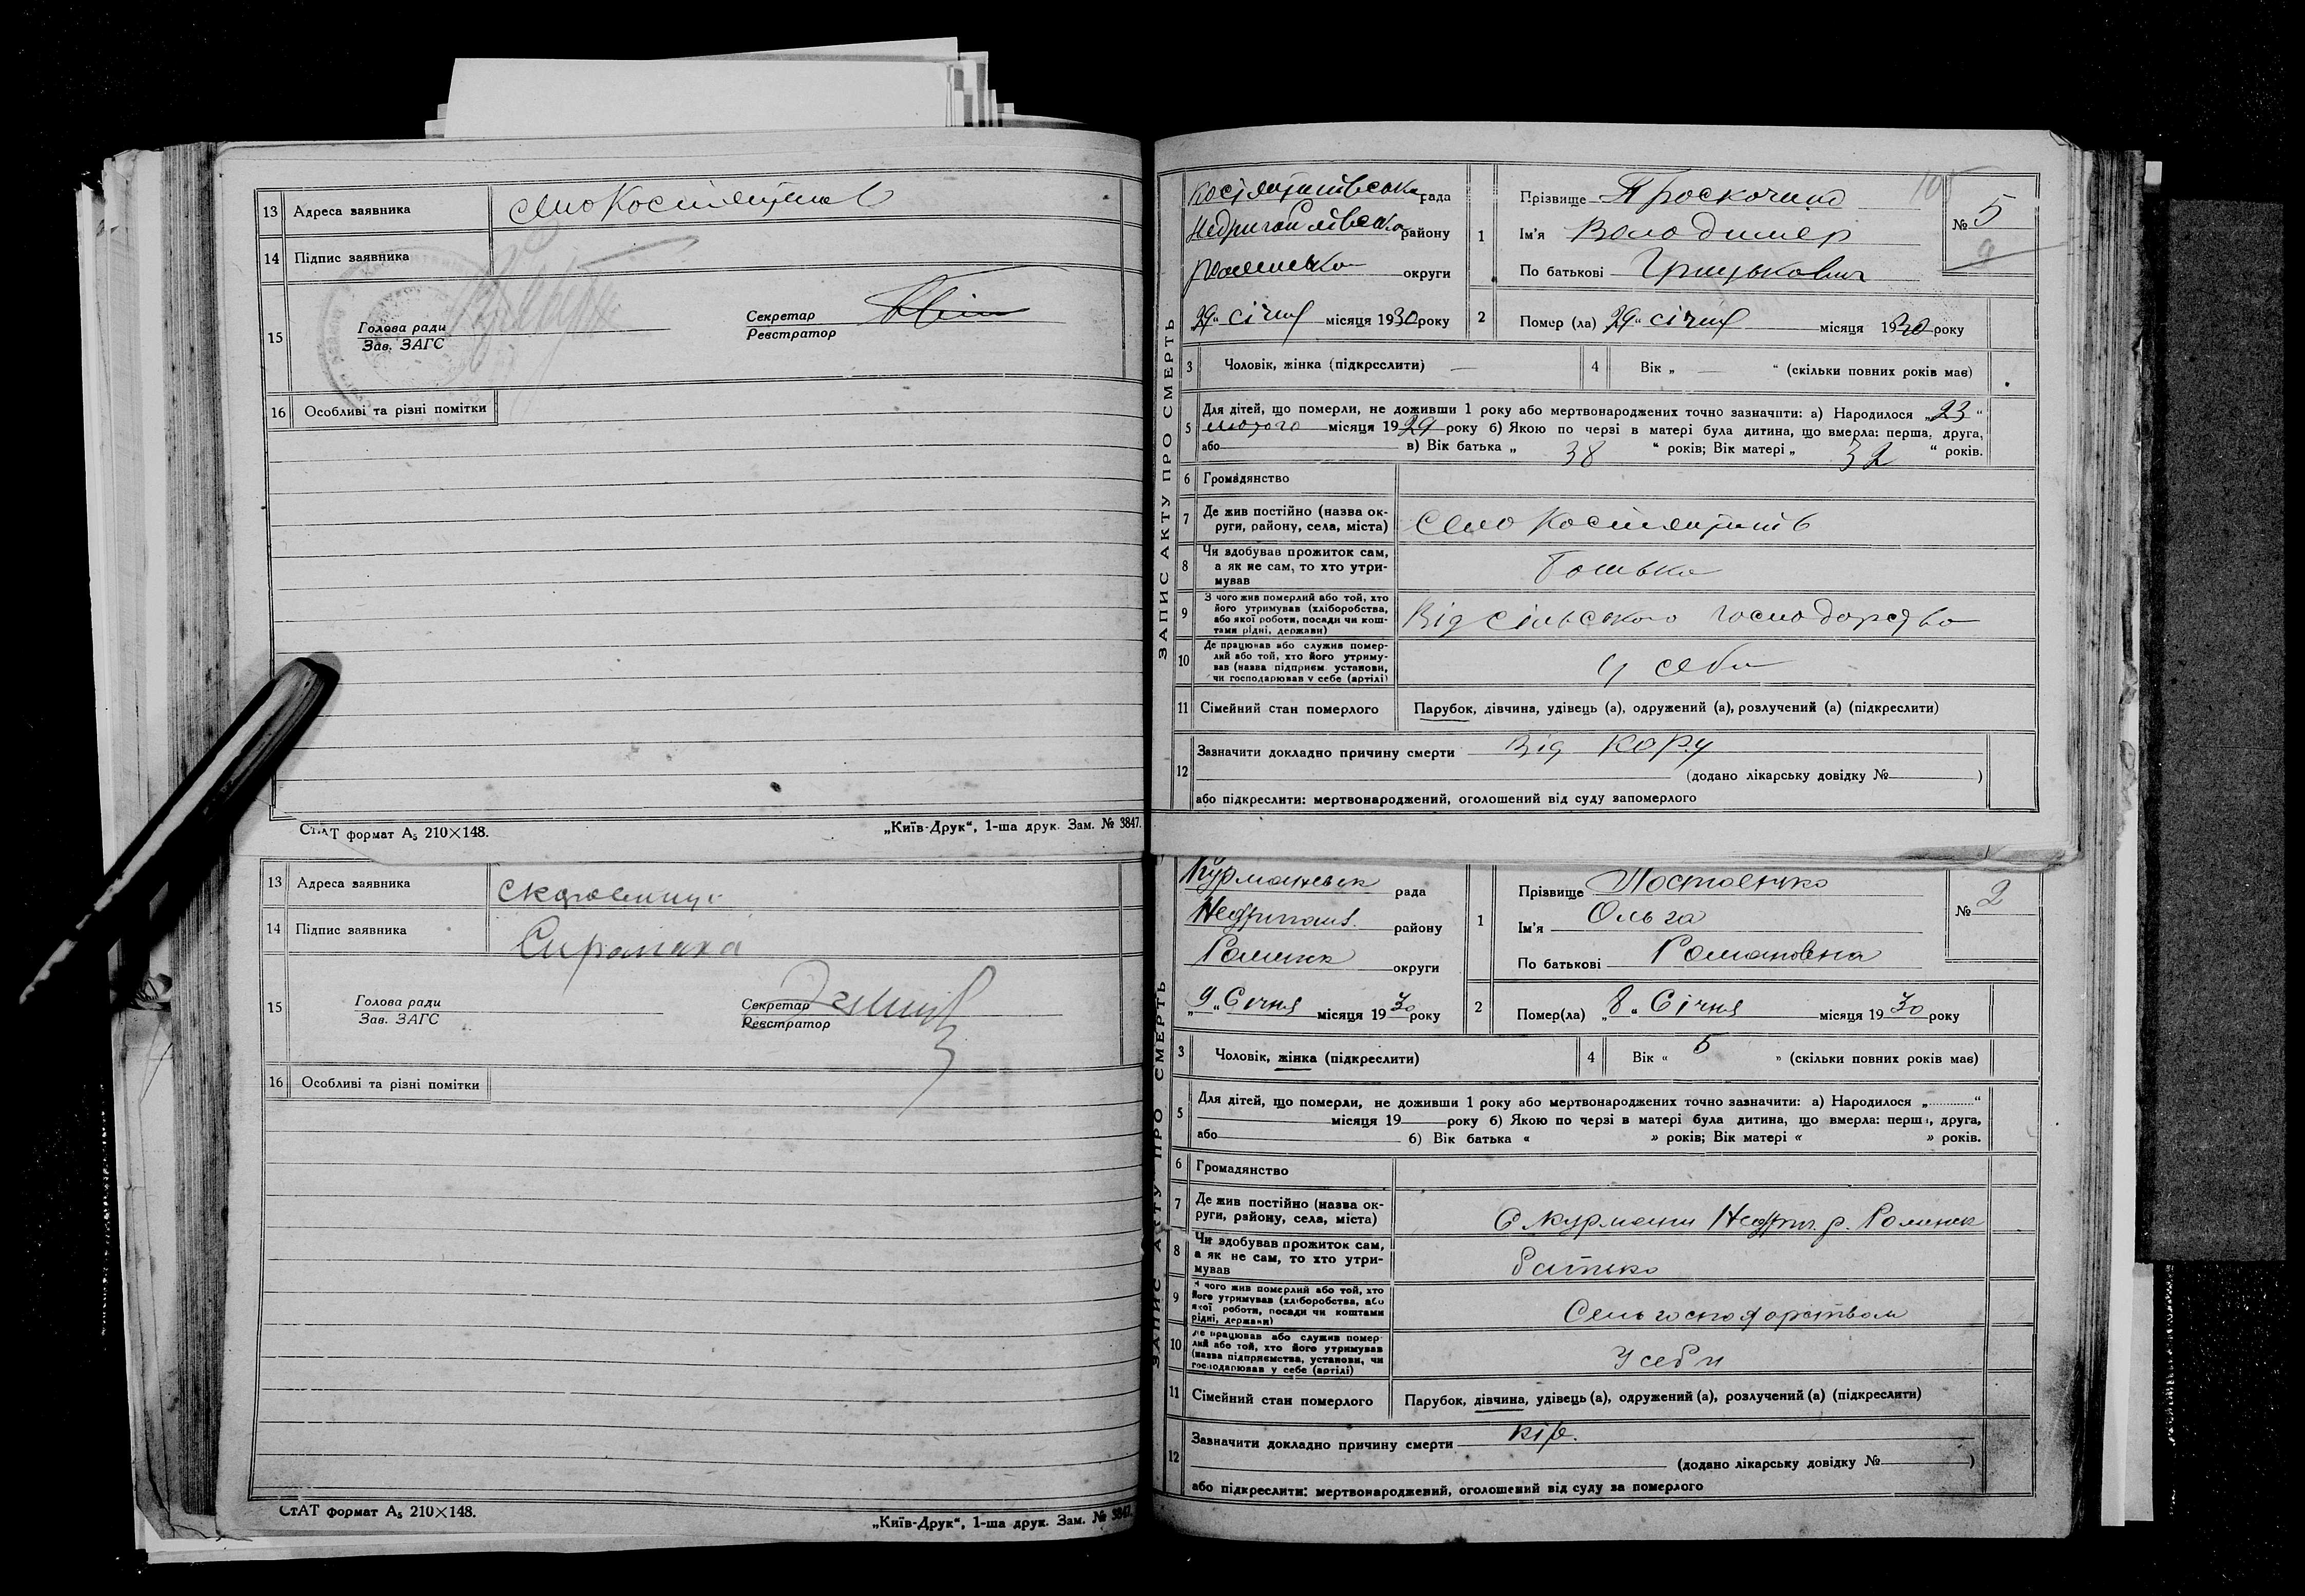 13 Адреса заявника село Костянтинів
14 Підпис заявника
15 Голова ради
Зав. ЗАГС
Секретар
Реєстратор
16 Особливі та різні помітки
СтАТ формат А5 210×148.
„Київ-Друк“, 1-ша друк. Зам. № 3847.
ЗАПИС АКТУ ПРО СМЕРТЬ
Костянтинівська рада
Недригайлівсько району
Роменсько округи
„29“ січня місяця 1930 року
1 Прізвище
Ім'я Володимер
По батькові Грицькович
№ 5
2 Помер (ла) „29“ січня місяця 1930 року
3 Чоловік, жінка (підкреслити) —
4 Вік „ — “ (скільки повних років має)
5 Для дітей, що померли, не доживши 1 року або мертвонароджених точно зазначити: а) Народилося „23“
лютого місяця 1929 року б) Якою по черзі в матері була дитина, що вмерла: перша, друга,
або в) Вік батька „ 38 “ років; Вік матері „ 32 “ років.
6 Громадянство
7 Де жив постійно (назва ок-
руги, району, села, міста) Село Костянтинів
8 Чи здобував прожиток сам,
а як не сам, то хто утри-
мував батько
9 З чого жив померлий або той, хто
його утримував (хліборобства,
або якої роботи, посади чи кош-
тами рідні, держави) Від сільського господарства
10 Де працював або служив помер-
лий або той, хто його утриму-
вав (назва підприєм. установи,
чи господарював у себе (артілі) у себе
11 Сімейний стан померлого Парубок, дівчина, удівець (а), одружений (а), розлучений (а) (підкреслити)
12 Зазначити докладно причину смерти Від кору
(додано лікарську довідку № )
або підкреслити: мертвонароджений, оголошений від суду запомерлого
13 Адреса заявника
14 Підпис заявника Сиромаха
15 Голова ради
Зав. ЗАГС
Секретар
Реєстратор
16 Особливі та різні помітки
СтАТ формат А5 210×148.
„Київ-Друк“, 1-ша друк. Зам. № 3847.
ЗАПИС АКТУ ПРО СМЕРТЬ
Курманевск рада
Недригайл. району
Роменск округи
„9“ Січня місяця 1930 року
1 Прізвище
Ім'я Ольга
По батькові Романовна
№ 2
2 Помер(ла) „8“ Січня місяця 1930 року
3 Чоловік, жінка (підкреслити)
4 Вік « 5 » (скільки повних років має)
5 Для дітей, що померли, не доживши 1 року або мертвонароджених точно зазначити: а) Народилося „ “
місяця 19 року б) Якою по черзі в матері була дитина, що вмерла: перша, друга,
або б) Вік батька « » років; Вік матері « » років.
6 Громадянство
7 Де жив постійно (назва ок-
руги, району, села, міста) С Курмани Недриг. р. Роменск
8 Чи здобував прожиток сам,
а як не сам, то хто утри-
мував батько
9 З чого жив померлий або той, хто
його утримував (хліборобства, або
якої роботи, посади чи коштами
рідні, держави) Сельгосподарством
10 Де працював або служив помер-
лий або той, хто його утримував
(назва підприємства, установи, чи
господарював у себе (артілі) У себи
11 Сімейний стан померлого Парубок, дівчина, удівець (а), одружений (а), розлучений (а) (підкреслити)
12 Зазначити докладно причину смерти кір.
(додано лікарську довідку № )
або підкреслити: мертвонароджений, оголошений від суду за померлого